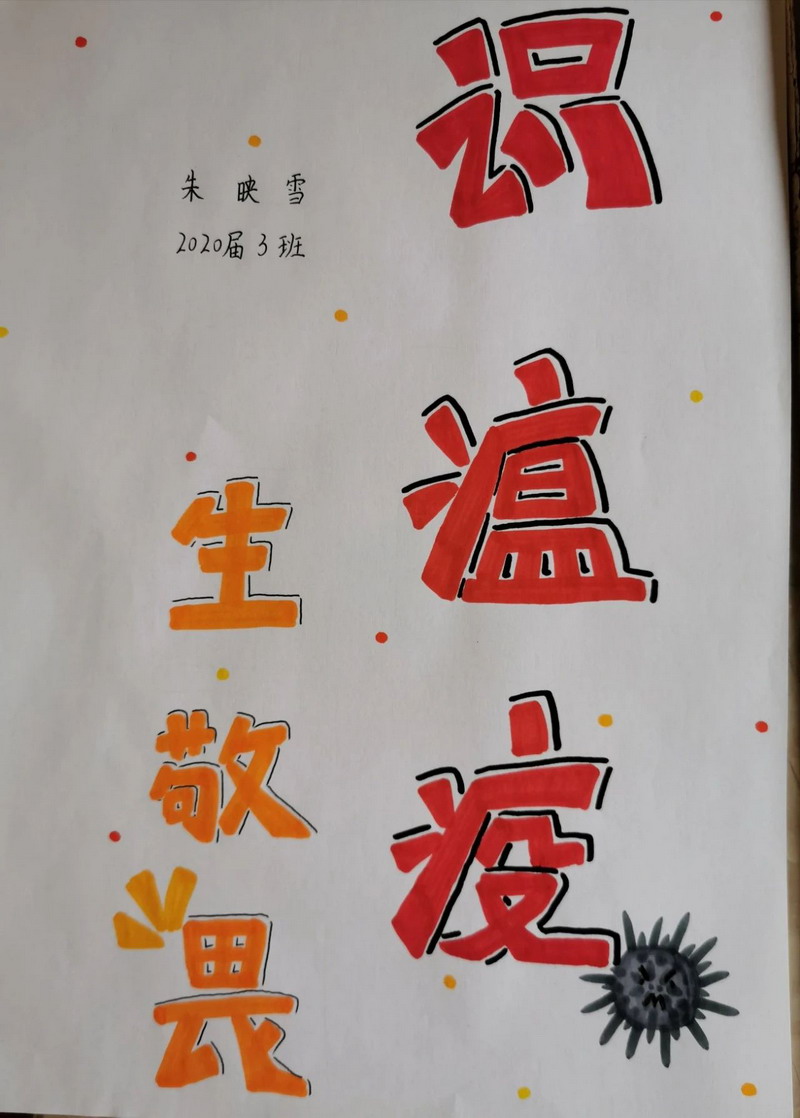 识瘟疫
生敬畏
朱映雪
2020届3班